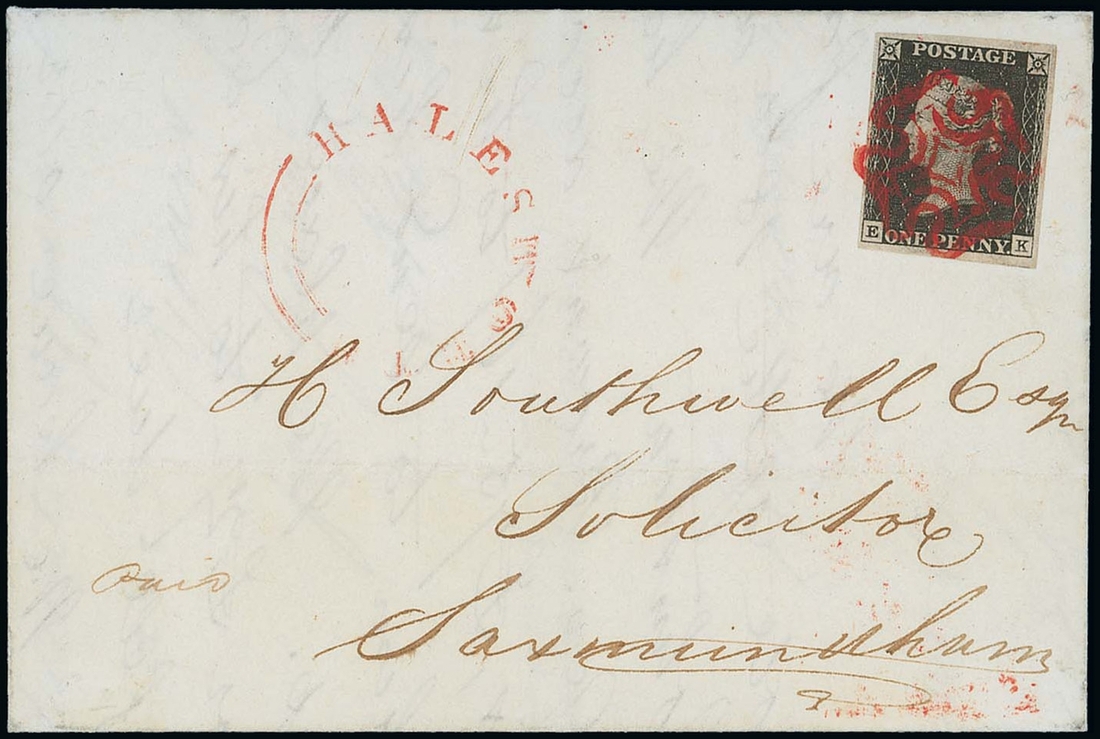 POSTAGE
E ONE PENNY K
HALES
H Southwell Esqr
Solicitor
Paid
Saxmundham